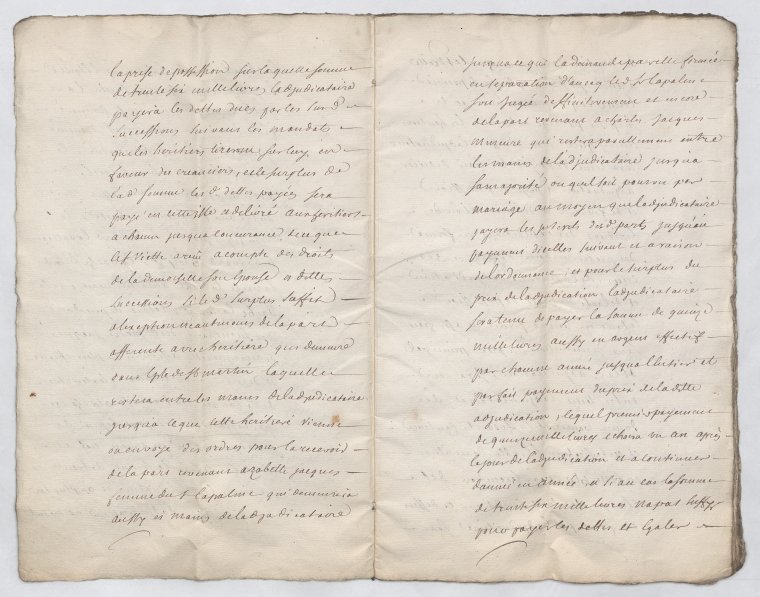 la prise de possession sur laquelle somme
de trente six mille livres ladjudicataire
payera les dettes dues par les sus de
successions suivant les mandats
que les heritiers tireront sur luy en
faveur des creanciers, et le surplus de
lad somme les de dettes payées sera
payé en cette isle et delivré aux heritiers
a chacun jusqua concurance de ce que
le Sr Viette a reçu a compte des droits
de la demoiselle son Epouse es dittes
successions si led surplus suffit
a lexception neantmoins de la part
afferente a une heritiere qui demeure
dans lisle de St martin laquelle
restera entre les mains de ladjudicataire
jusqua ce que cette heritiere vienne
ou envoye des ordres pour la recevoir
de la part revenant a zabelle jacques
femme du Sr Lapalme qui demeurera
aussy es mains de ladjudicataire
jusqua ce que la demande par elle formée
en separation dauecq led Sr Lapalme
soit jugée definitivement et encore
de la part revenant a charles jacques
mineure qui restera pareillement entre
les mains de ladjudicataire jusqua
sa majorité ou quel soit pourvu par
mariage au moyen que ladjudicataire
payera les interets desd parts jusquau
payement dicelles suivant et a raison
de lordonnance, et pour le surplus du
prix de ladjudication ladjudicataire
sera tenu de payer la somme de quinze
mille livres aussy en argent effectif
par chacune année jusqua lentier et
parfait payement du prix de la ditte
adjudication, lequel premier payement
de quinze mille livres echoira un an après
le jour de ladjudication et a continuer
dannée en année, et si au cas la somme
de trente six mille livres ne peut suffir
pour payer les dettes et Egaler